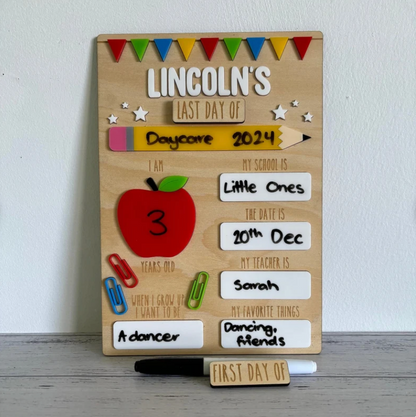 LINCOLN'S
LAST DAY OF
Daycare 2024
I AM
3
YEARS OLD
WHEN I GROW UP
I WANT TO BE
A dancer
MY SCHOOL IS
Little Ones
THE DATE IS
20th Dec
MY TEACHER IS
Sarah
MY FAVORITE THINGS
Dancing,
friends
FIRST DAY OF